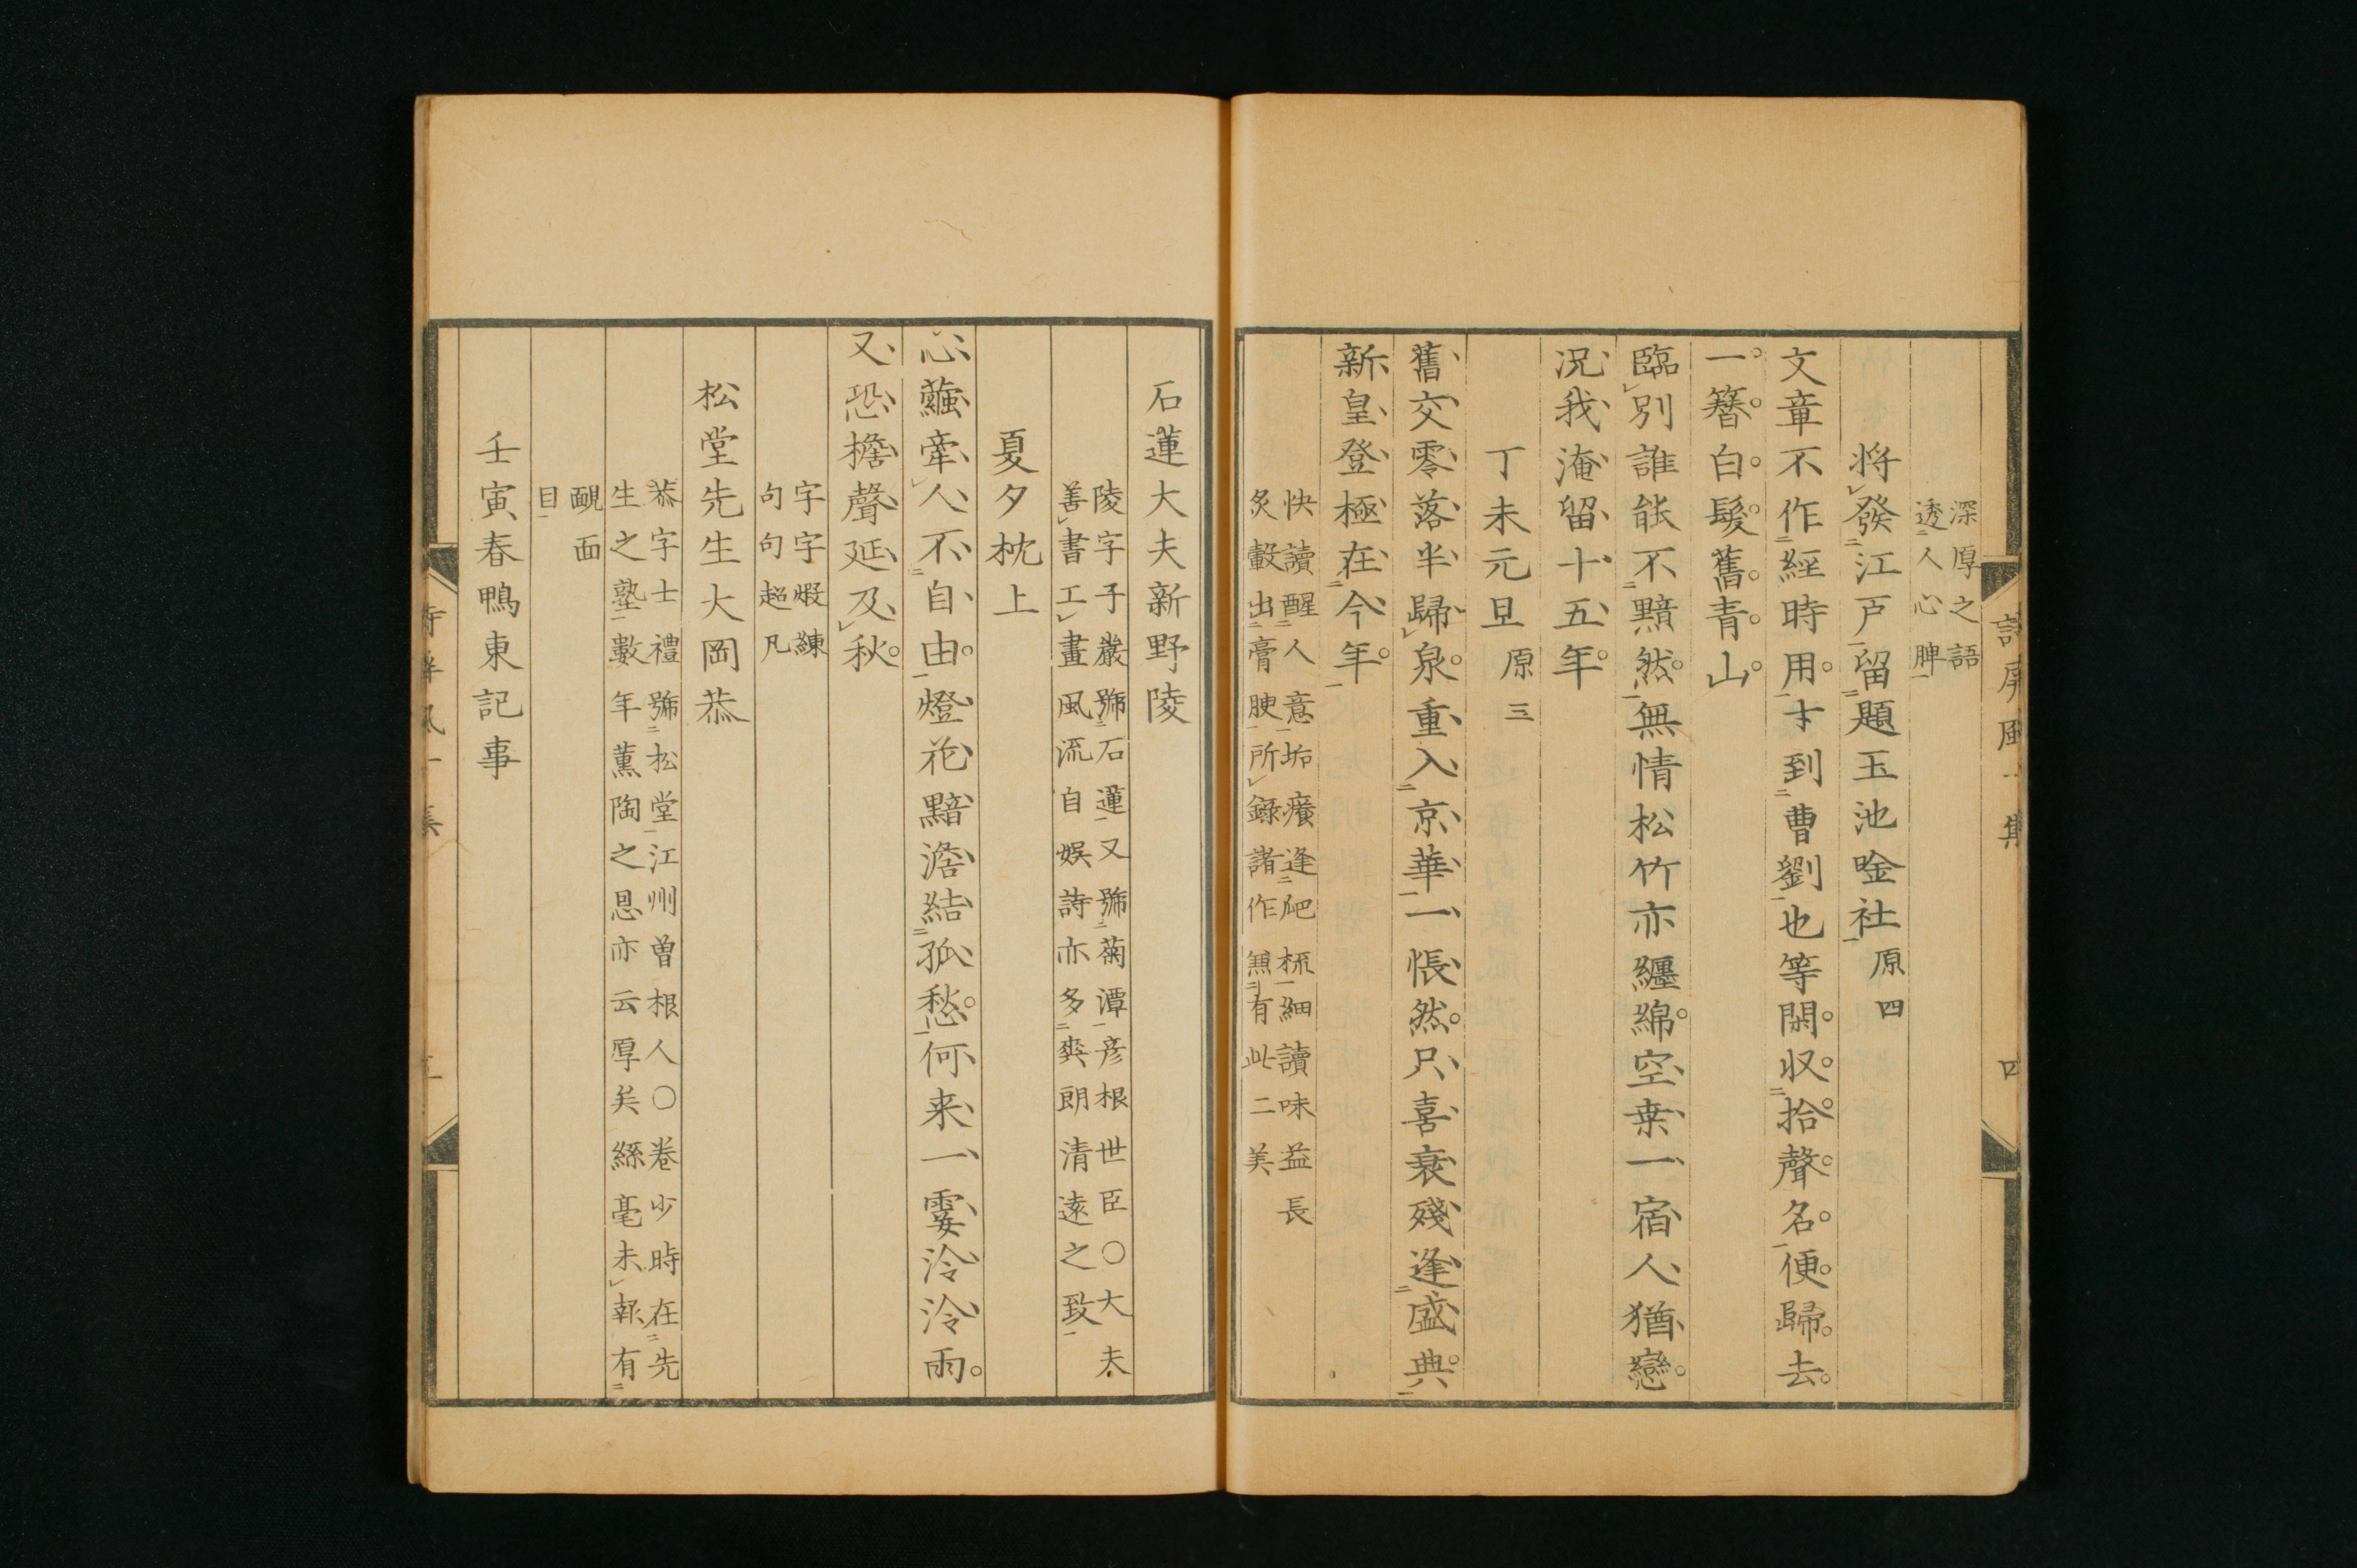 深厚之語
透人心脾
将發江戸留題玉池唫社原四
文章不作經時用才到曹劉也等閑収拾聲名便歸去
一簪白髮舊青山
臨別誰能不黯然無情松竹亦纏綿空桒一宿人猶戀
況我淹留十五年
丁未元旦原三
舊交零落半歸泉重入京華一悵然只喜衰殘逢盛典
新皇登極在今年
快讀醒人意垢癢逢爬梳細讀味益長
炙轂出膏腴所錄諸作無有此二美
詩屏風一集 四
石蓮大夫新野陵
陵字子巖號石蓮又號菊潭彦根世臣○大夫
善書工畫風流自娯詩亦多爽朗清遠之致
夏夕枕上
心蘂牽人不自由燈花黯澹結孤愁何来一霎泠泠雨
又恐檐聲延及秋
字字煆練
句句超凡
松堂先生大岡恭
恭字士禮號松堂江州曽根人○卷少時在先
生之塾數年薫陶之恩亦云厚矣絲毫未報有
靦面
目
壬寅春鴨東記事